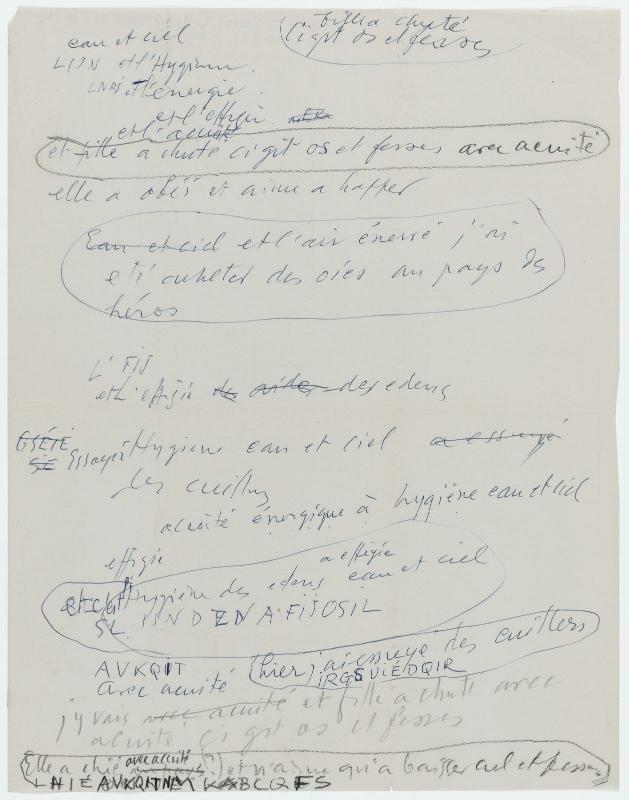 fille a chuté
eau et ciel
ci gît os et fesses
LIJN et l'Hygiène
LNRJ et l'énergie
et l'effigie
et l'acuité
et fille a chuté ci gît os et fesses avec acuité
elle a obéi et aime a happer
Eau et ciel et l'air énervé j'ai
été acheter des oies au pays des
héros
L' FIJ
et L'effigie des aides des edens
GSÉTÉ
Essayer Hygiène eau et ciel a essuyé
des cuillers
acuité énergique à hygiène eau et ciel
effigie a effigie
et c'est Hygiène des edens eau et ciel
SL IJN D ZN A FIJ OSIL
AVKQIT (hier) j'ai essuyé des cuillers
avec acuité IRGSUIEDQIR
j'y vais avec acuité et fille a chuté avec
acuité ci gît os et fesses
avec acuité
Elle a chié et n'aime qu'a baiser ciel et fesses
LHIÉAVKQITNMKABCQFS